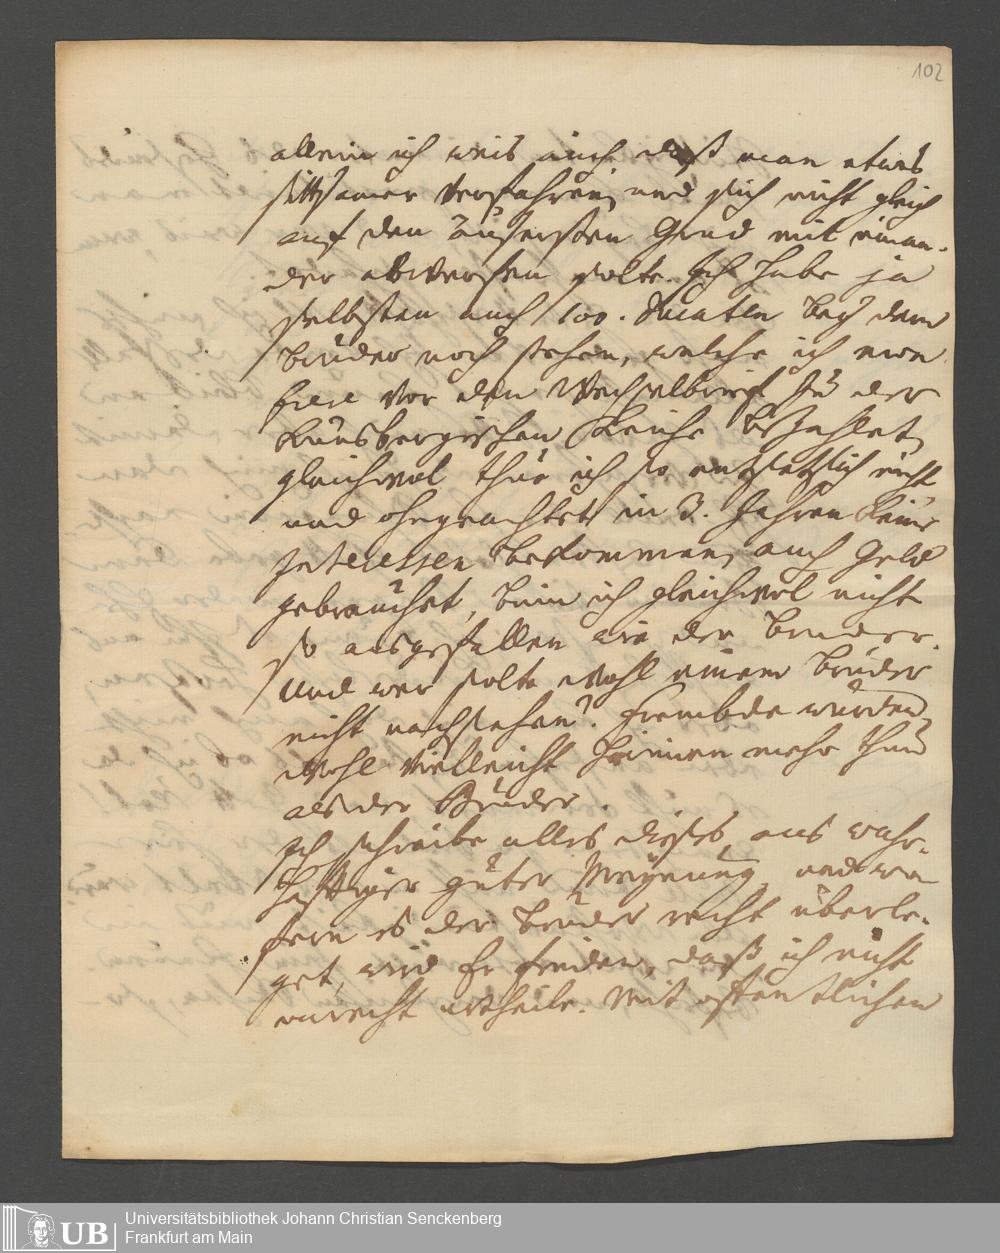 102
allein ich weis auch daß man etwas
sittsamer Verfahren, und sich nicht gleich
auf den äusersten Grad mit einan-
der abwerfen solte. Ich habe ja
selbsten auch 100. Ducaten bey dem
bruder noch stehen, welche ich
vor den Wechselbrief zu der
Künsbergischen Leiche bezahlet,
gleichwol thue ich so entsetzlich nicht
und ohngeachtet in 3. Jahren keine
Interessen bekommen, auch Geld
gebrauchet, binn ich gleichwol nicht
so ausgefallen wie der bruder.
Und wer solte wohl einem bruder
nicht nachsehen? frembde würden
wohl vielleicht hierinnen mehr thun
als der Bruder.
Ich schreibe alles dieses aus wahr-
hafftiger guter Meynung und wo
fern es der bruder recht überle-
get, wird Er finden, daß ich nicht
unrecht urtheile. Mit offentlichen
UB
Universitätsbibliothek Johann Christian Senckenberg
Frankfurt am Main